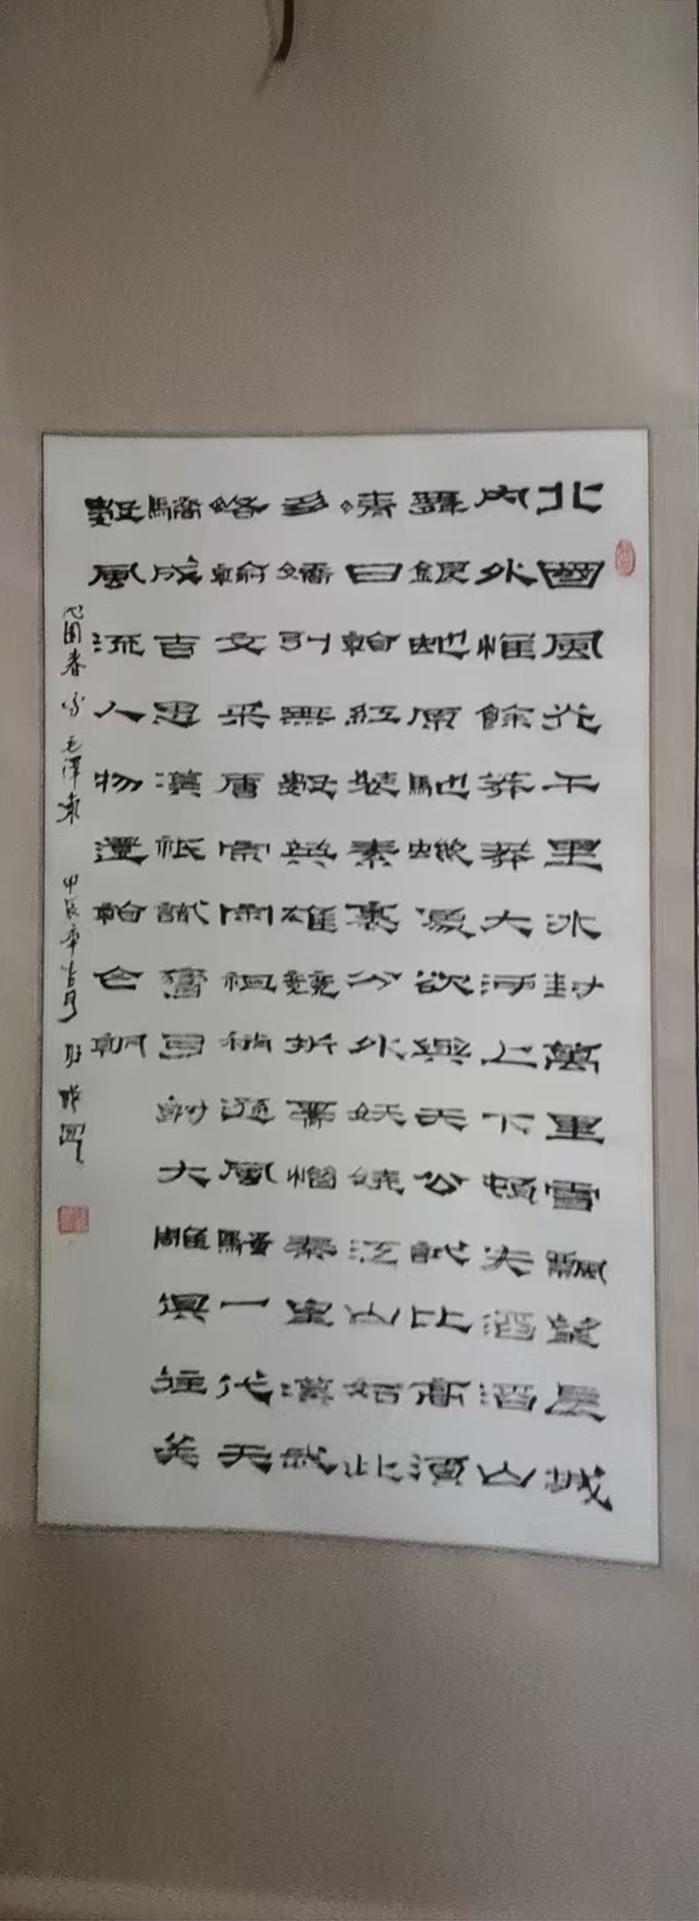 北國風光千里冰封萬里雪飄望長城
內外惟餘莽莽大河上下頓失滔滔山
舞銀蛇原馳蠟象欲與天公試比高須
晴日看紅裝素裹分外妖嬈江山如此
多嬌引無數英雄競折腰惜秦皇漢武
略輸文采唐宗宋祖稍遜風騷一代天
驕成吉思漢祇識彎弓射大雕俱往矣
數風流人物還看今朝
沁園春雪毛澤東 甲辰年吉月